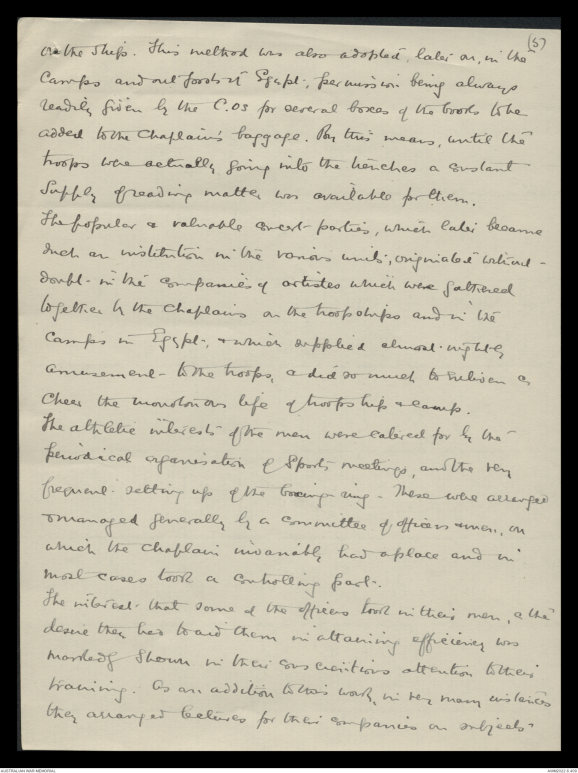 (5)
on the ship. This method was also adopted, later on, in the
Camps and outposts of Egypt, permission being always
readily given by the C.Os for several boxes of the books to be
added to the Chaplain's baggage. By this means, until the
troops were actually going into the trenches a constant
Supply of reading matter was available for them.
The popular & valuable concert-parties, which later became
such an institution in the various units, originated without-
doubt- in the companies of artistes which were gathered
together by the Chaplains on the troopships and in the
Camps in Egypt-, & which supplied almost-nightly
amusement- to the troops, & did so much to enliven &
cheer the monotonous life of troopship & camp.
The athletic interests of the men were catered for by the
periodical organisation of Sports meetings, and the very
frequent- setting up of the boxing-ring- These were arranged
& managed generally by a Committee of officers & men, on
which the Chaplain invariably had a place and in
most cases took a controlling part-.
The interest- that some of the officers took in their men, & the
desire they had to aid them in attaining efficiency was
markedly shown in their conscientious attention to their
training. As an addition to this work, in very many instances
they arranged lectures for their companies on subjects-
AUSTRALIAN WAR MEMORIAL